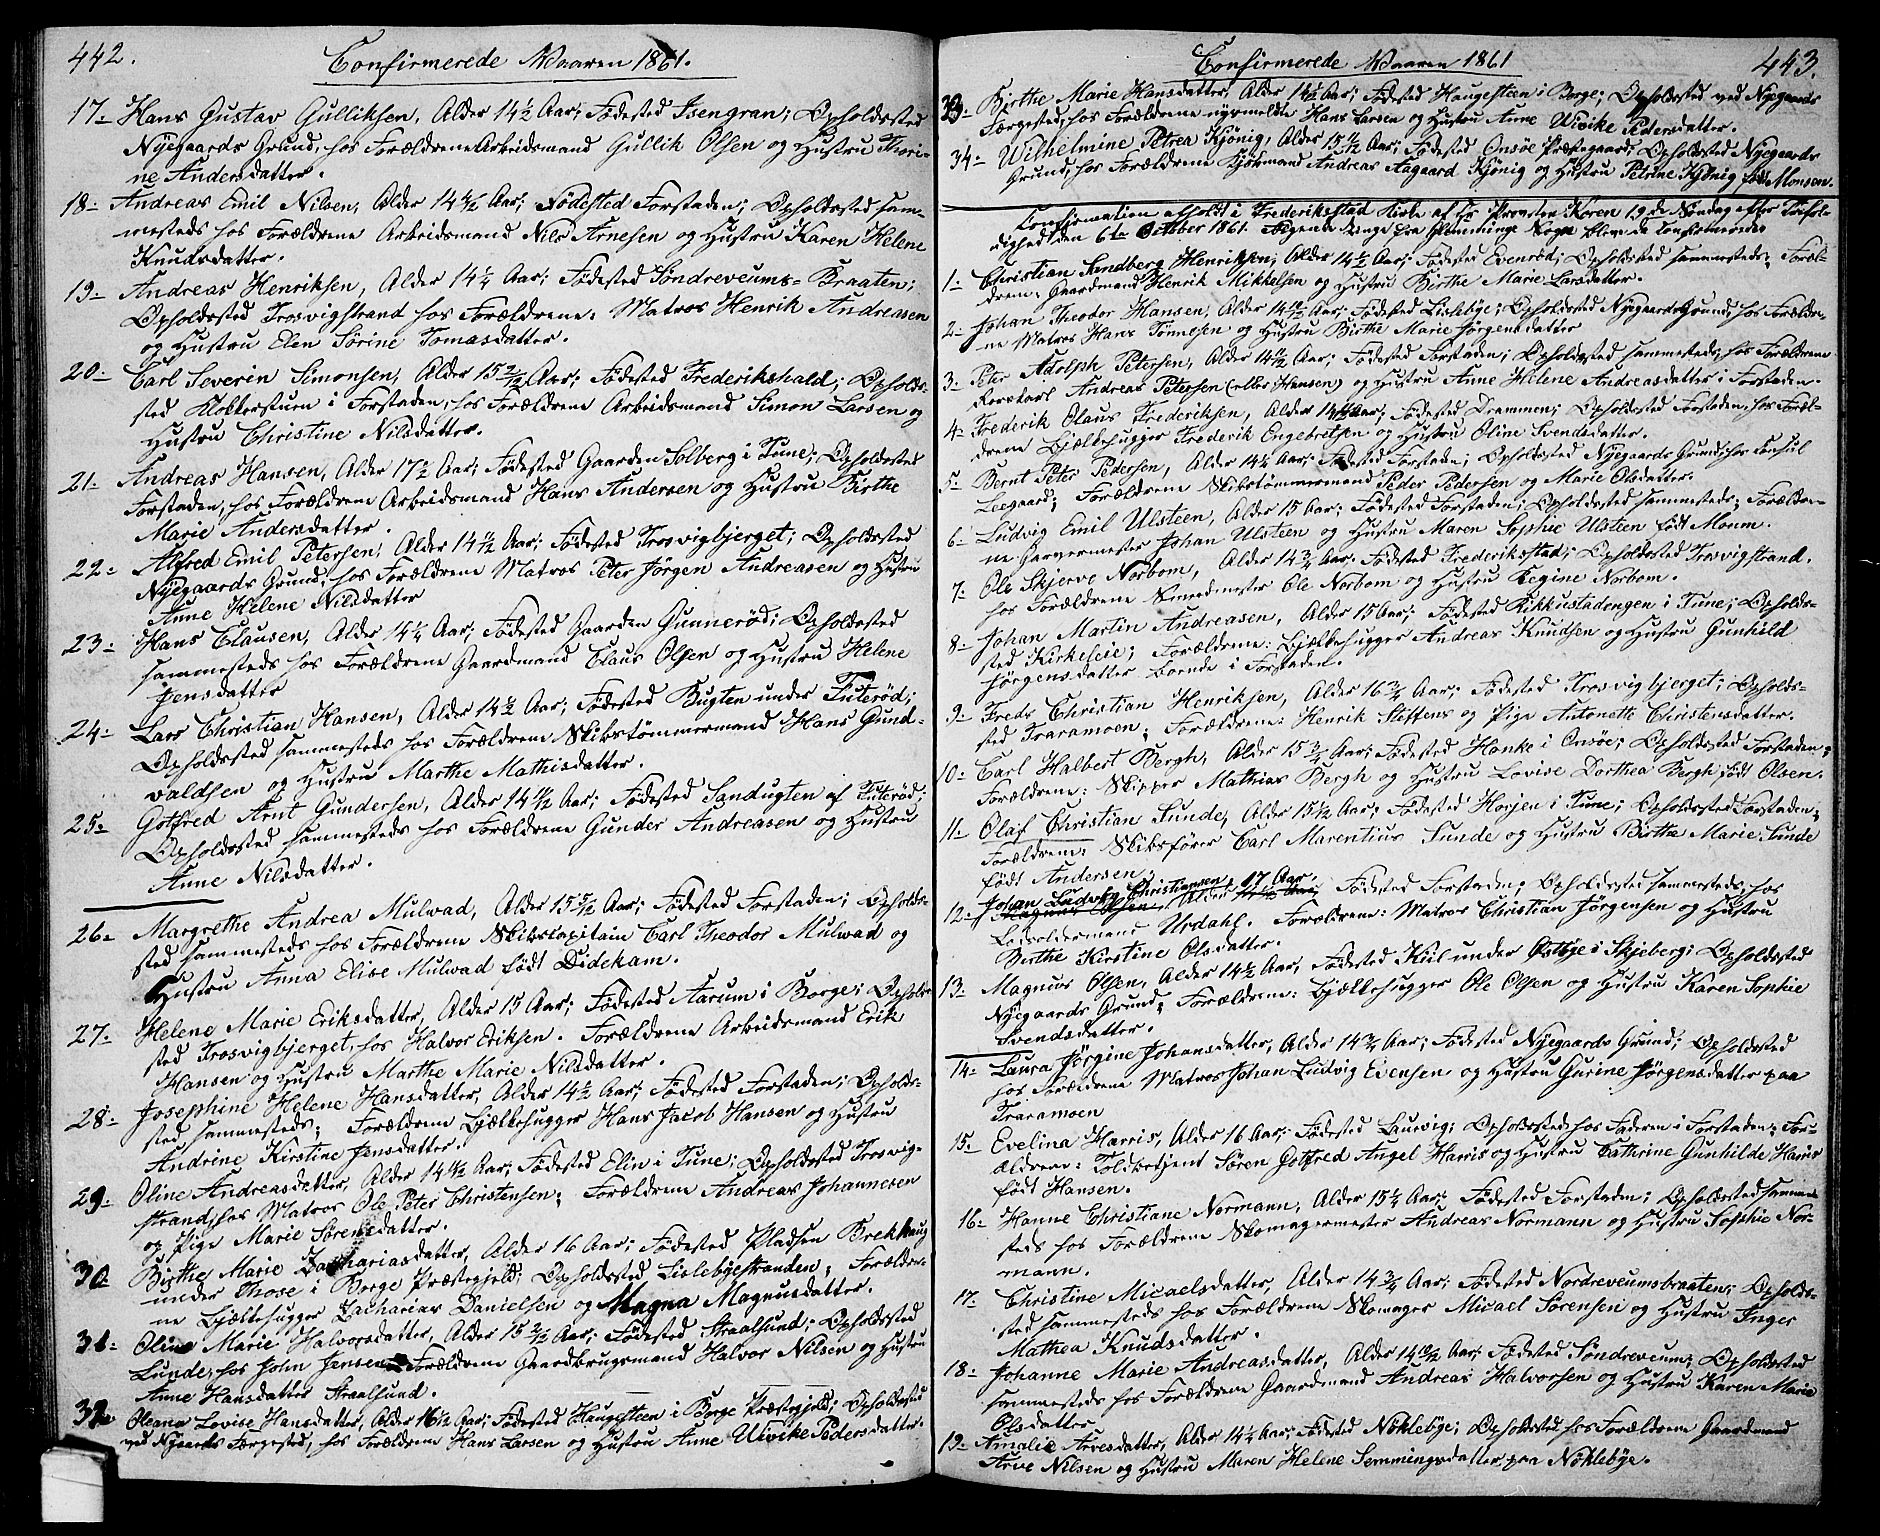 442.
Confirmerede Vaaren 1861.
17- Hans Gustav Gulliksen, Alder 14½ Aar; Fødested Isengran; Opholdssted
Nyegaards Grund, hos Forældrene Arbeidsmand Gullik Olsen og Hustru Thori-
ne Andersdatter.
18- Andreas Emil Nilsen, Alder 14 Aar; Fødested Forstaden; Opholdssted sam-
mesteds hos Forældrene Arbeidsmand Nils Arnesen og Hustru Karen Helene
Knudsdatter.
19- Andreas Henriksen, Alder 14½ Aar; Fødested Søndreveums-Braaten;
Opholdssted Trosvigstrand hos Forældrene: Matros Henrik Andreasen
og Hustru Elen Sørine Tomasdatter.
20- Carl Severin Simonsen, Alder 15 2/12 Aar; Fødested Frederikshald; Opholds-
sted i Forstaden, hos Forældrene Arbeidsmand Simon Larsen og
Hustru Christine Nilsdatter.
21- Andreas Hansen, Alder 17½ Aar; Fødested Gaarden Solberg i Tune; Opholdssted
Forstaden, hos Forældrene Arbeidsmand Hans Andersen og Hustru Birthe
Marie Andersdatter.
22- Alfred Emil Petersen, Alder 14 Aar; Fødested Trosvigbjerget; Opholdssted
Nyegaards Grund, hos Forældrene Matros Peter Jørgen Andreasen og Hustru
Anne Helene Nilsdatter
23- Hans Clausen, Alder 14¼ Aar, Fødested Gaarden Gunnerød; Opholdssted
sammesteds hos Forældrene Gaardmand Claus Olsen og Hustru Helene
Jensdatter
24- Lars Christian Hansen, Alder 14½ Aar; Fødested Bugten under Tuterød;
Opholdssted sammesteds hos Forældrene Skibstømmermand Hans Gund-
valdsen og Hustru Marthe Mathisdatter.
25- Gotfred Arnt Gundersen, Alder 14 Aar; Fødested Sandugten af Tuterød;
Opholdssted sammesteds hos Forældrene Gunder Andreasen og Hustru
Anne Nilsdatter.
26- Margrethe Andrea Mulwad, Alder 15 5/12 Aar; Fødested Forstaden; Opholds-
sted sammesteds hos Forældrene Skibskapitain Carl Theodor Mulwad og
Hustru Anna Elise Mulwad født Didekam.
27- Helene Marie Eriksdatter, Alder 15 Aar; Fødested Aarum i Borge; Opholds-
sted Trosvigbjerget, hos Halvor Eriksen. Forældrene Arbeidsmand Erik
Hansen og Hustru Marthe Marie Nilsdatter.
28- Josephine Helene Hansdatter, Alder 14½ Aar; Fødested Forstaden; Opholds-
sted sammesteds; Forældrene Bjælkehugger Hans Jacob Hansen og Hustru
Andrine Kirstine Jensdatter.
29- Oline Andreasdatter, Alder 14 Aar; Fødested Elin i Tune; Opholdssted Trosvig-
strand, hos Matros Ole Peter Christensen; Forældrene Andreas Johannesen
og Pige Marie Sørensdatter.
30- Birthe Marie Zachariasdatter, Alder 16 Aar; Fødested Pladsen Brekkhaug
under Those i Borge Præstegjeld; Opholdssted Lislebyestranden; Forældre-
ne Bjælkehugger Zacharias Danielsen og Magna Magnusdatter.
31- Oline Marie Halvorsdatter, Alder 15 2/12 Aar; Fødested Straalsund; Opholdssted
Lunde, hos John Jensen Forældrene Gaardbrugsmand Halvor Nilsen og Hustru
Anne Hansdatter Straalsund.
32- Oleana Lovise Hansdatter, Alder 16½ Aar; Fødested Haugesteen i Borge Præstegjeld; Opholdssted
ved Nygaards Færgested, hos Forældrene Hans Larsen og Hustru Anne Uivike Pedersdatter.
Confirmerede Vaaren 1861
443.
33- Birthe Marie Hansdatter, Alder 14½ Aar; Fødested Haugesteen i Borge; Opholdssted ved Nyegaards
Færgested, hos Forældrene nysmeldte Hans Larsen og Hustru Anne Uivike Pedersdatter.
34- Wilhelmine Petrea Kjønig, Alder 15 Aar; Fødested Onsøe Præstegaard; Opholdssted Nyegaards
Grund, hos Forældrene Kjøbmand Andreas Aagaard Kjønig og Hustru Petrine Kjønig født Monsen.
Konfirmation afholdt i Frederiksstad Kirke af Hr Provsten Koren 19de Søndag efter Trefol-
dighed den 6te October 1861. Følgende Unge fra Glemminge Sogn bleve da konfirmerede
1- Christian Sandberg Henriksen, Alder 14½ Aar; Fødested Evenrød; Opholdssted sammesteds; Foræl-
drene, Gaardmand Henrik Mikkelsen og Hustru Birthe Marie Larsdatter.
2- Johan Theodor Hansen, Alder 14 10/12 Aar; Fødested Lislebye; Opholdssted Nyegaards Grund, hos Forældre-
ne Matros Hans Tønnesen og Hustru Birthe Marie Jørgensdatter
3- Peter Adolph Petersen, Alder 14 Aar; Fødested Forstaden; Opholdssted sammesteds, hos Forældrene
Andreas Petersen (eller Hansen) og Hustru Anne Helene Andreasdatter i Forstaden.
4- Frederik Olaus Frederiksen, Alder Aar, Fødested Drammen; Opholdssted Forstaden, hos Foræl-
drene Bjælkehugger Frederik Engebretsen og Hustru Oline Svendsdatter.
5- Bernt Peter Pedersen, Alder 14½ Aar; Fødested Forstaden; Opholdssted Nyegaards Grund, hos Consul
Leegaard; Forældrene Skibstømmermand Peder Pedersen og Marie Olsdatter.
6- Ludvig Emil Ulsteen, Alder 15 Aar; Fødested Forstaden; Opholdssted sammesteds; Forældre-
ne Garvermester Johan Ulsteen og Hustru Maren Sophie Ulsteen født Momm.
7- Ole Skjerve Norbom, Alder 14¾ Aar; Fødested Frederiksstad; Opholdssted Trosvigstrand,
hos Forældrene Ole Norbom og Hustru Regine Norbom.
8- Johan Martin Andreasen, Alder 15 Aar; Fødested Rikkustadengen i Tune; Opholds-
sted Kirkeseie; Forældrene: Bjælkehugger Andreas Knudsen og Hustru Gunhild
Jørgensdatter boende i Forstaden.
9- Fredr Christian Henriksen, Alder 16¾ Aar; Fødested Trosvigbjerget; Opholds-
sted Traramoen; Forældrene: Henrik Steffens og Pige Antonette Christensdatter.
10- Carl Halbert Bergh, Alder 15¾ Aar; Fødested Hanke i Onsøe; Opholdssted Forstaden;
Forældrene: Skipper Mathias Bergh og Hustru Lovise Dorthea Bergh født Olsen.
11- Olaf Christian Sunde, Alder 15½ Aar; Fødested Horjen i Tune; Opholdssted Forstaden;
Forældrene: Skibsfører Carl Marentius Sunde og Hustru Birthe Marie Sunde
født Andersen.
12- Johan Ludvig Christiansen, 17 Aar, Fødested Forstaden; Opholdssted sammesteds, hos
Urdahl. Forældrene: Matros Christian Jørgensen og Hustru
Birthe Kirstine Olsdatter.
13- Magnus Olsen, Alder 14½ Aar, Fødested Kiil under Østbye i Skjeberg; Opholdssted
Nyegaards Grund; Forældrene: Bjælkehugger Ole Olsen og Hustru Karen Sophie
Svendsdatter.
14- Laura Jørgine Johansdatter, Alder 14¾ Aar; Fødested Nyegaards Grund; Opholdssted
hos Forældrene Matros Johan Ludvig Evensen og Hustru Gurine Jørgensdatter paa
Traramoen
15- Evelina Harris, Alder 16 Aar; Fødested Laurvig; Opholdssted hos Faderen i Forstaden; For-
ældrene: Toldbetjent Søren Gotfred Angel Harris og Hustru Cathrine Gunhilde Harris
født Hansen.
16- Hanne Christiane Normann, Alder 15¼ Aar; Fødested Forstaden; Opholdssted samme-
steds hos Forældrene Skomagermester Andreas Normann og Hustru Sophie Nor-
mann.
17- Christine Micaelsdatter, Alder 14¾ Aar; Fødested Nordreveumsbraaten; Opholds-
sted sammesteds hos Forældrene Skomager Micael Sørensen og Hustru Inger
Mathea Knudsdatter.
18- Johanne Marie Andreasdatter, Alder 14 10/12 Aar; Fødested Søndreveum; Opholdssted
sammesteds hos Forældrene Gaardmand Andreas Halvorsen og Hustru Karen Marie
Olsdatter
19- Amalie Arvesdatter, Alder 14¼ Aar; Fødested Nøklebye; Opholdssted hos Forældrene Gaardmand
Arve Nilsen og Hustru Maren Helene Semmingsdatter paa Nøklebye.